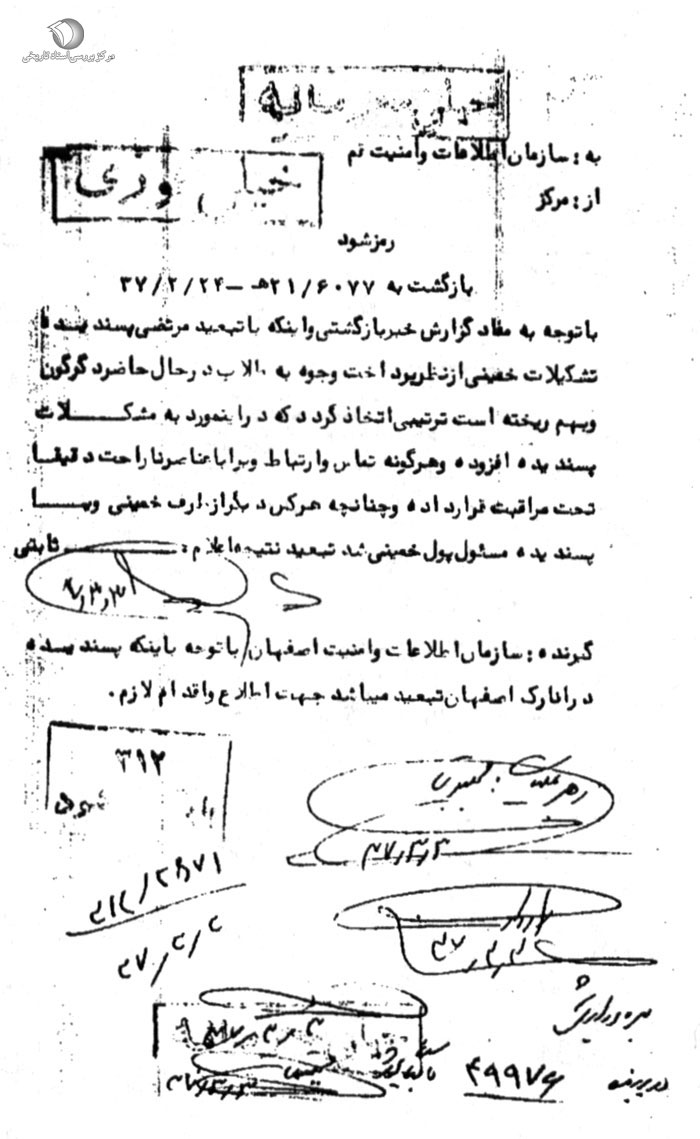 مرکز بررسی اسناد تاریخی
خیلی محرمانه
به : سازمان اطلاعات و امنیت قم
خیلی فوری
از : مرکز
رمز شود
بازگشت به ۲۱/۶۰۷۷ هـ – ۳۷/۲/۲۴
با توجه به مفاد گزارش خبر بازگشتی و اینکه با تبعید مرتضی پسندیده
تشکیلات خمینی از نظر پرداخت وجوه به طلاب در حال حاضر دگرگون
و بهم ریخته است ترتیبی اتخاذ گردد که در اینمورد به مشکلات
پسندیده افزوده و هرگونه تماس و ارتباط ویرا با عناصر ناراحت دقیقا
تحت مراقبت قرار داده و چنانچه هر کس دیگر از طرف خمینی و یا
پسندیده مسئول پول خمینی شد تبعید نتیجه اعلام : ثابتی
گیرنده : سازمان اطلاعات و امنیت اصفهان با توجه باینکه پسندیده
در انارک اصفهان تبعید میباشد جهت اطلاع و اقدام لازم .
۳۱۲
رهبر عملیات :
۳۷/۳/۳
۳۱۲/۲۸۷۱
۳۷/۳/۲
۳۷/۳/۲
۳۷/۳/۳
در پرونده ۴۹۹۷۶
۳۷/۳/۳